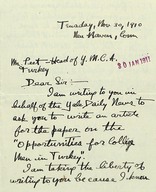 Tuesday, Nov. 30, 1910
New Haven, Conn
Mr. Peet - Head of Y.M.C.A.
Turkey
30 JAN 1911
Dear Sir:-
I am writing to you in
behalf of the Yale Daily News to
ask you to write an article
for the paper on the
"Opportunities for College
Men in Turkey."
I am taking the liberty of
writing to you because I know